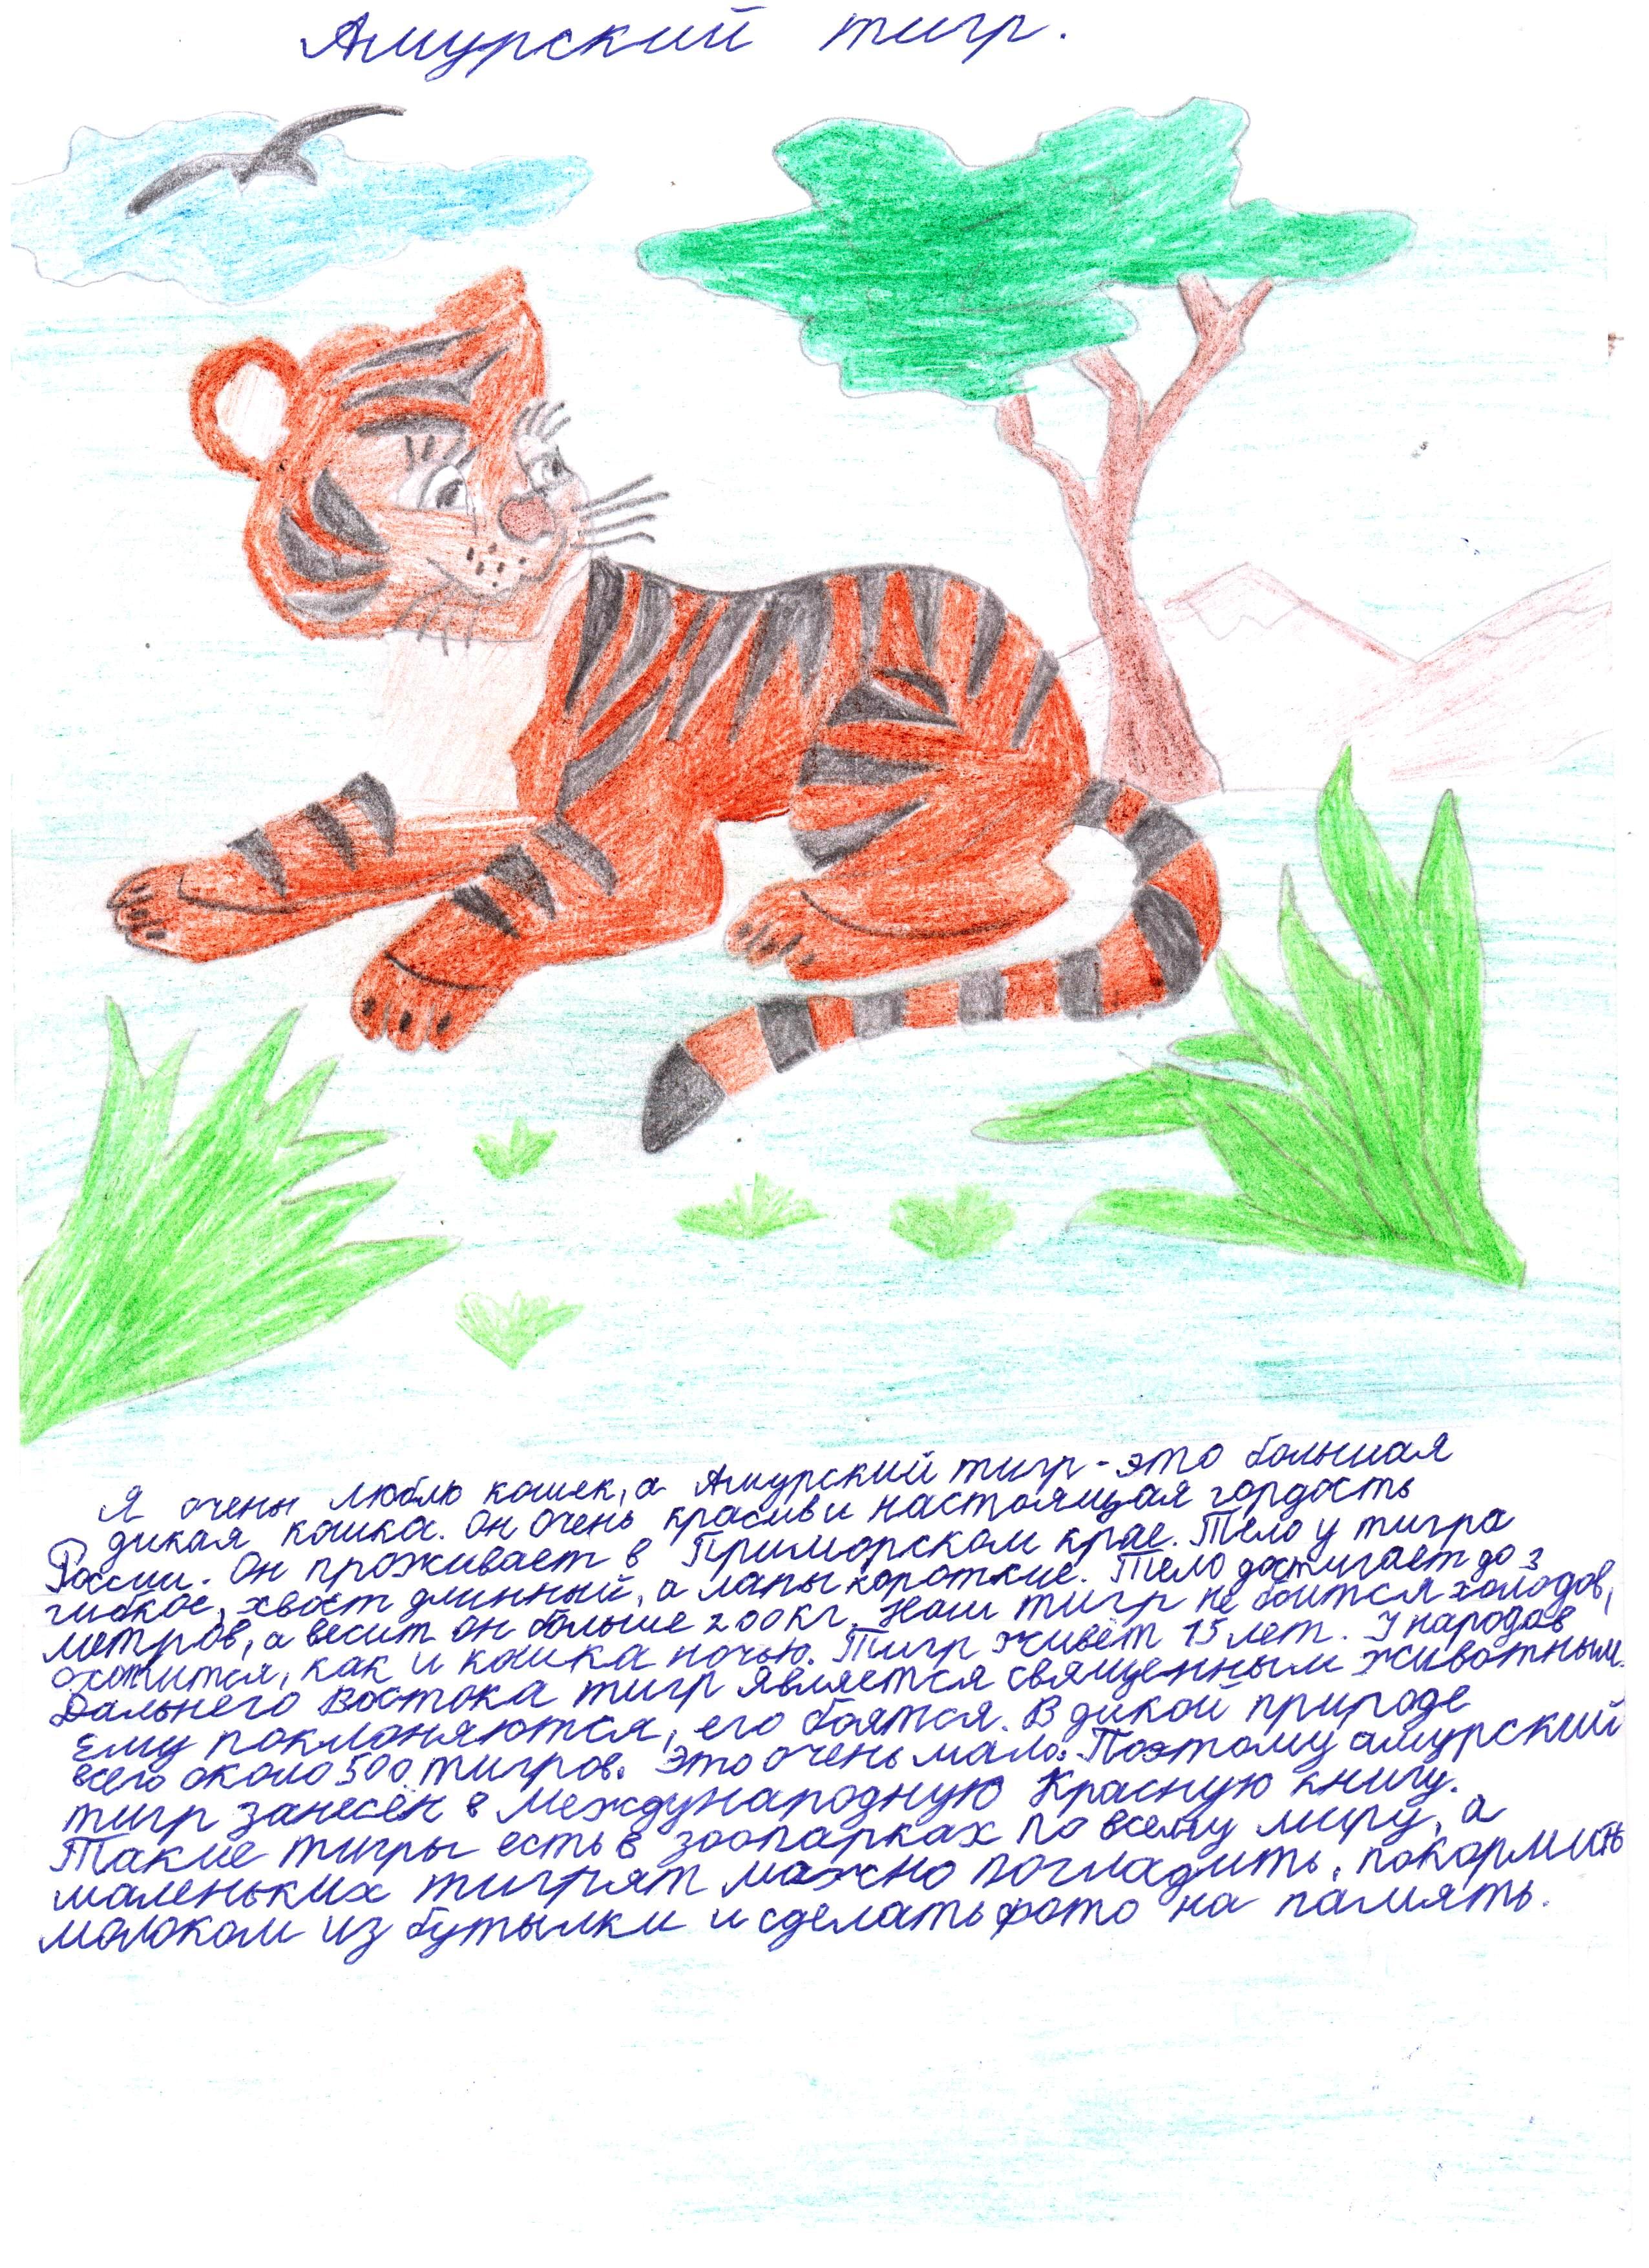 Амурский тигр.
Я очень люблю кошек, а Амурский тигр - это большая
дикая кошка. Он очень красив и настоящая гордость
России. Он проживает в Приморском крае. Тело у тигра
гибкое, хвост длинный, а лапы короткие. Тело достигает до 3
метров, а весит он больше 200 кг. Наш тигр не боится холодов,
охотится, как и кошка ночью. Тигр живёт 15 лет. У народов
Дальнего Востока тигр является священным животным.
Ему поклоняются, его боятся. В дикой природе
всего около 500 тигров. Это очень мало. Поэтому амурский
тигр занесён в Международную Красную книгу.
Такие тигры есть в зоопарках по всему миру, а
маленьких тигрят можно погладить, покормить
молоком из бутылки и сделать фото на память.